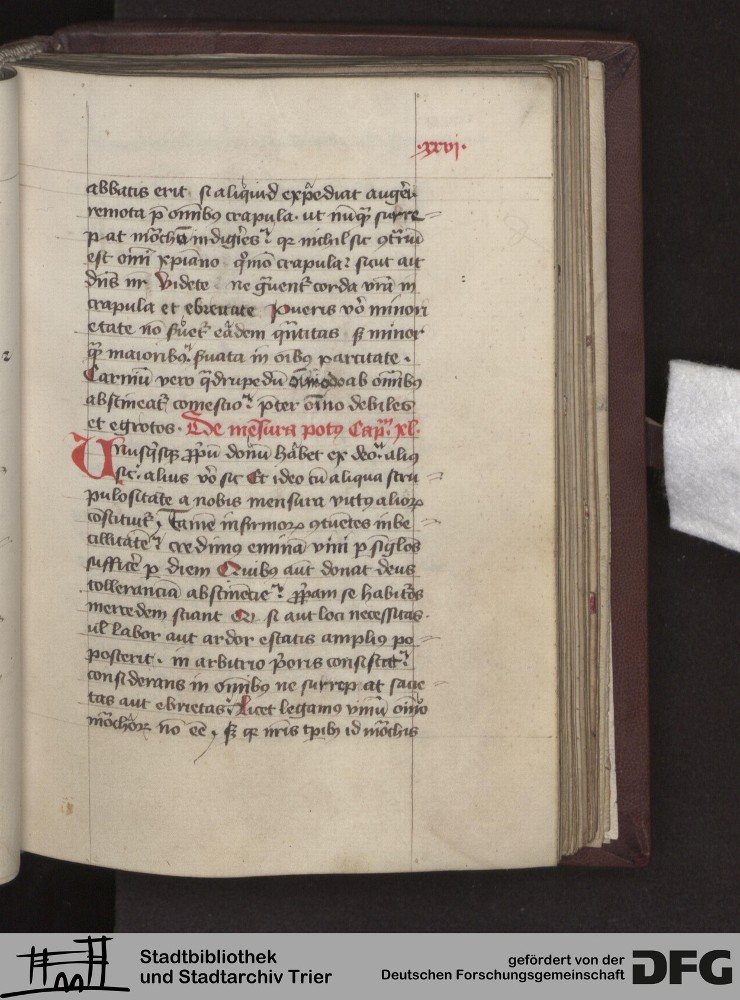 ·xxvi·
abbatis erit si aliquid expediat augere
remota p̄ omnibꝯ crapula· ut nūqᷓ surre
p at mōchū indigries qꝛ nichil sic ꝯtriū
est omī xp̄iano qͦmō crapula? sicut ait
dūs nr̄ Videte ne gͣuent corda vr̄a in
crapula et ebrietate Pueris vͦo minori
etate nō suet᷑ eadem qn̄titas sꝫ minor
qᷓ maioribꝯ suata in oībꝯ parcitate·
Carniū vero qͣdrupedū omīodo ab omībꝯ
abstineat᷑ comestio p̄ter oīno debiles
et egrotos· De mēsura potꝯ Cap. xl.
Unusqͥsqꝫ ꝓpͥū donū habet ex deo aliꝯ
sic· alius vͦo sic Et ideo cū aliqua scru
pulositate a nobis mensura victꝯ alioꝝ
cōstituit᷑, Tamē infirmoꝝ ꝯtuētes inbe
cillitatē credimꝯ eminā vini ꝑ siglos
sufficē ꝑ diem Quibꝯ aut donat deus
tollerancīa abstinētie ꝓpͥam se habituͦs
mercedem sciant Qꝛ si aut loci necessitas·
ul̄ labor aut ardor estatis ampliꝯ po
poscerit· in arbitrio pͥoris consistat
considerans in omībꝯ ne surrep at sacie
tas aut ebrietas Licet legamꝯ vinū oīno
mōchoꝝ nō eē, sꝫ qꝛ nr̄is tꝑibꝯ id mōchis
Stadtbibliothek
und Stadtarchiv Trier
gefördert von der
Deutschen Forschungsgemeinschaft
DFG